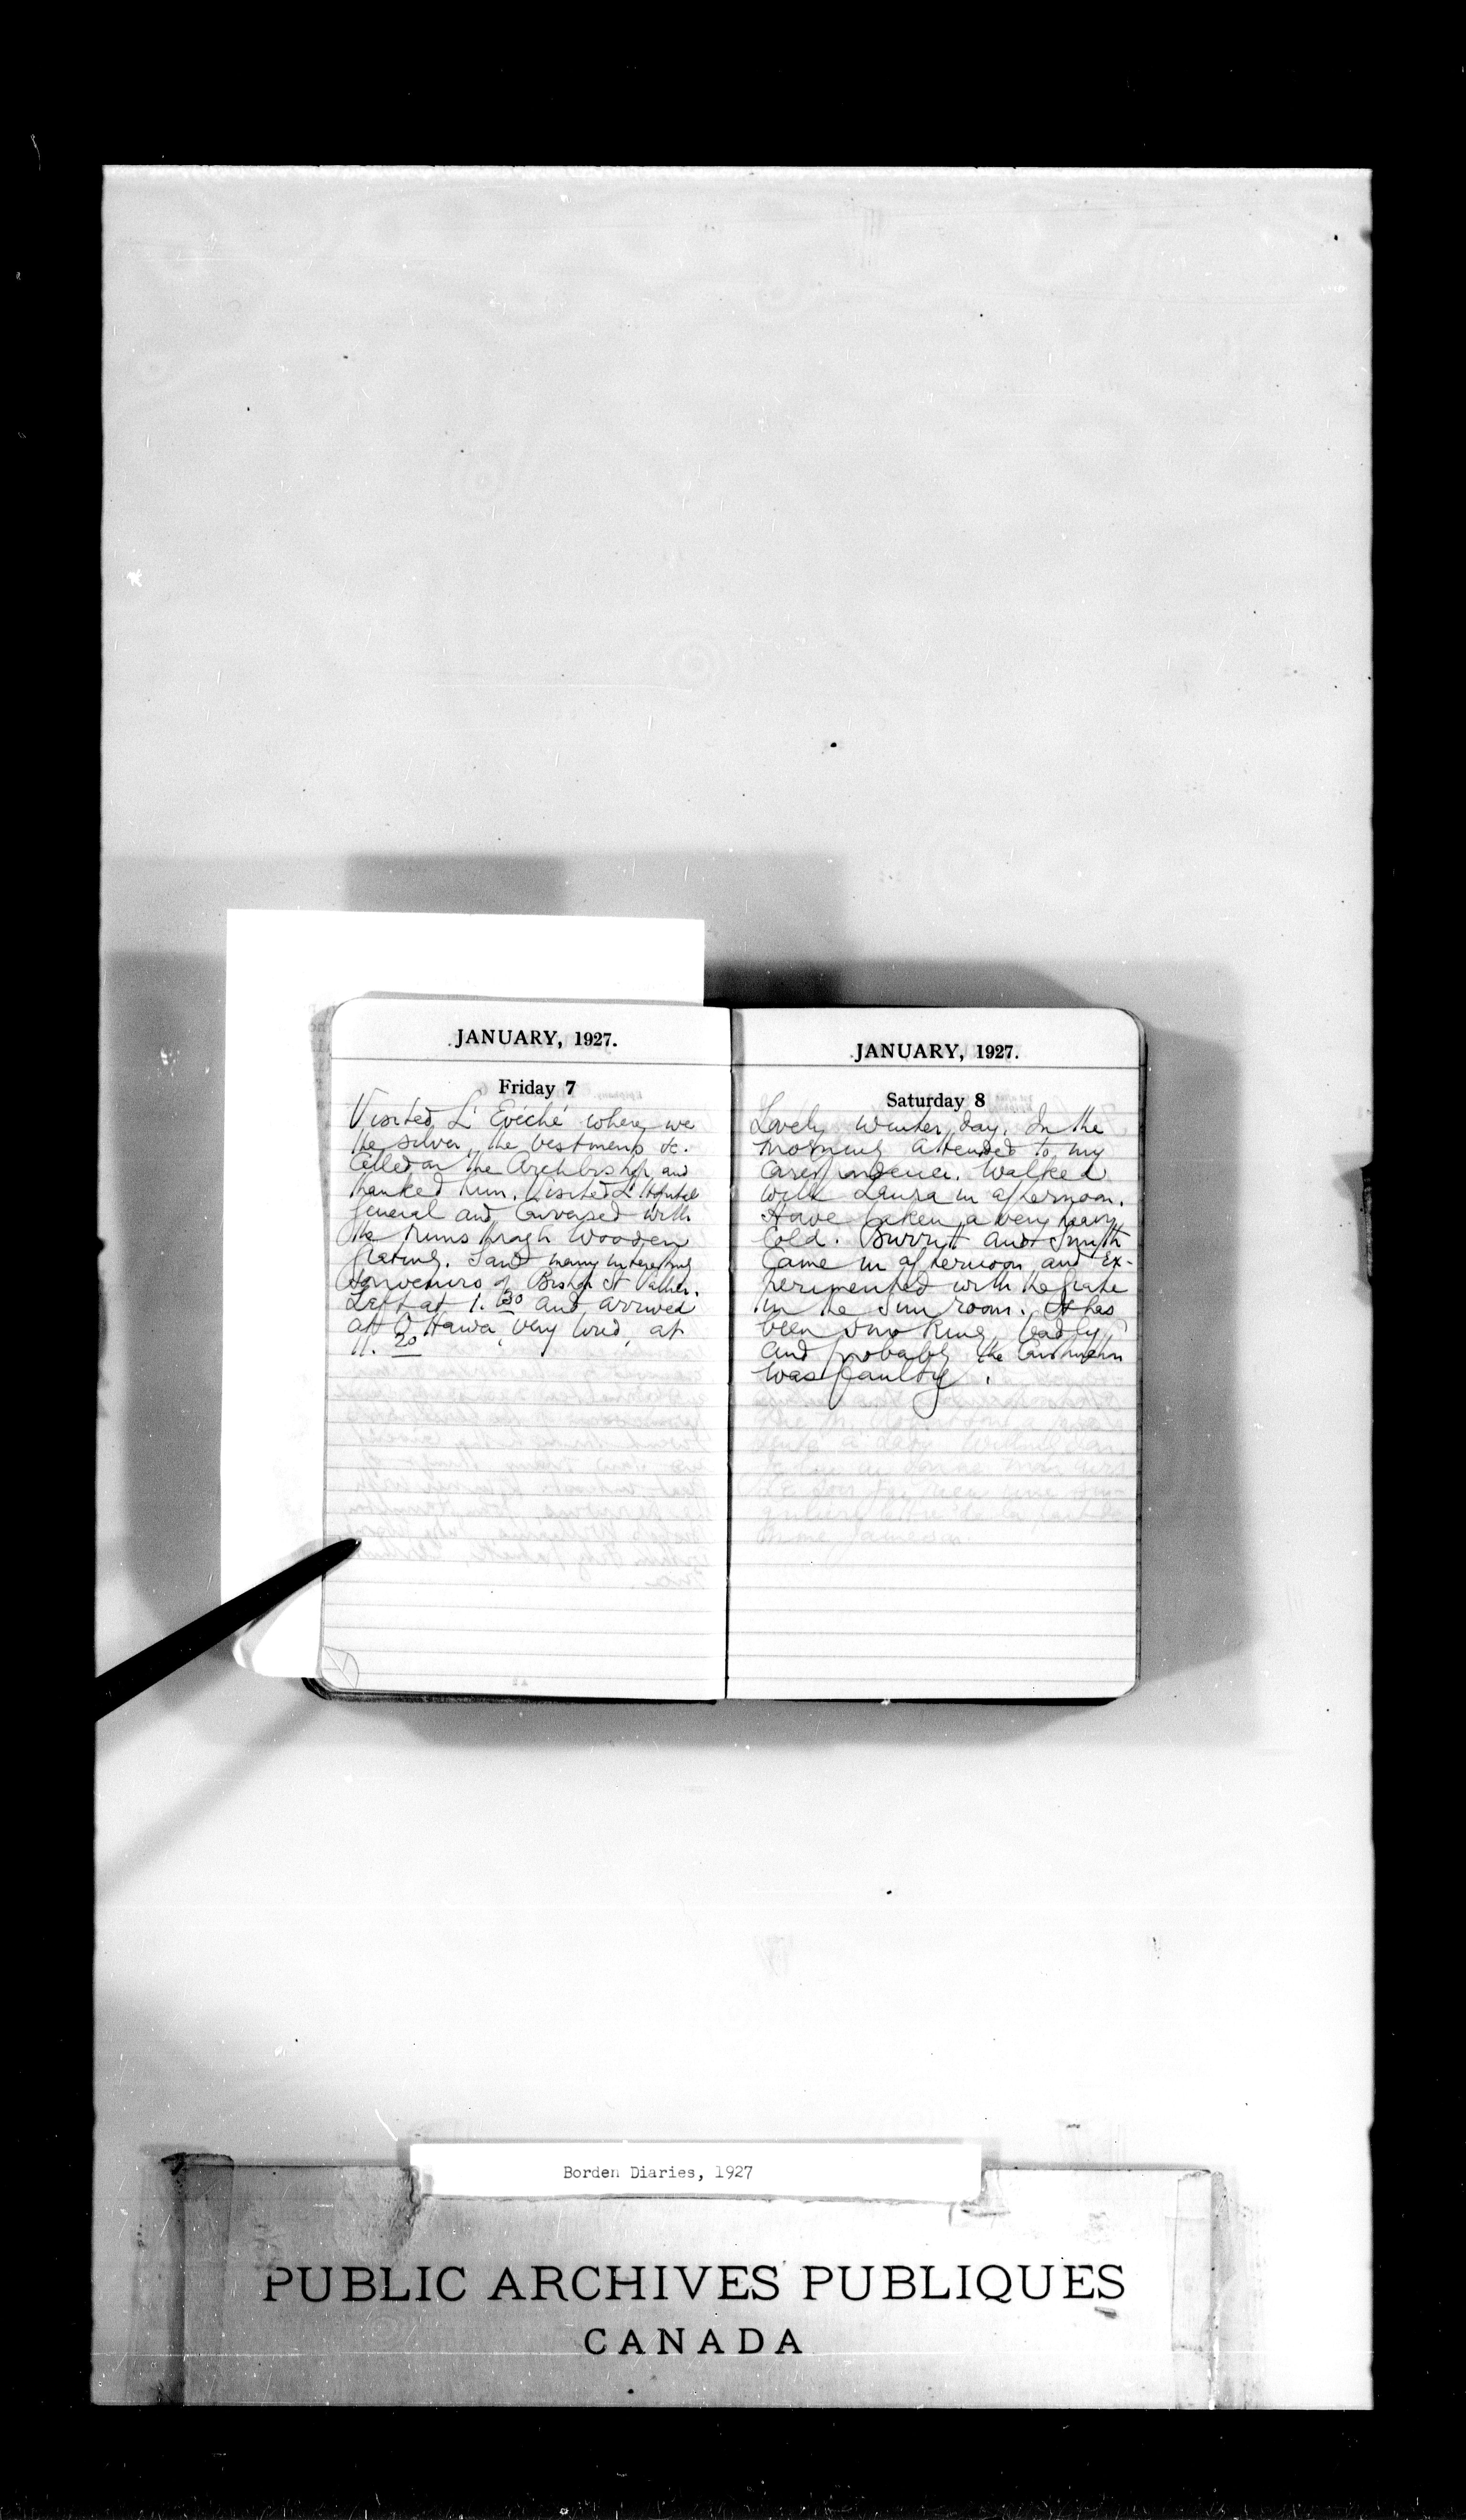 JANUARY, 1927.
Friday 7
Visited L'Evêché where we
the silver, the vestments &c.
Called on the Archbishop and
thanked him. Visited L'Hôpital
General and conversed with
the nuns through wooden
grating. Saw many interesting
souvenirs of Bishop St Vallier.
Left at 1.30 and arrived
at Ottawa, very tired, at
11.20
JANUARY, 1927.
Saturday 8
Lovely winter day. In the
morning attended to my
correspondence. Walked
with Laura in afternoon.
Have taken a very heavy
cold. Burritt and Smith
came in afternoon and ex-
perimented with the grate
in the sun room. It has
been smoking badly
and probably the
was faulty.
Borden Diaries, 1927
PUBLIC ARCHIVES PUBLIQUES
CANADA